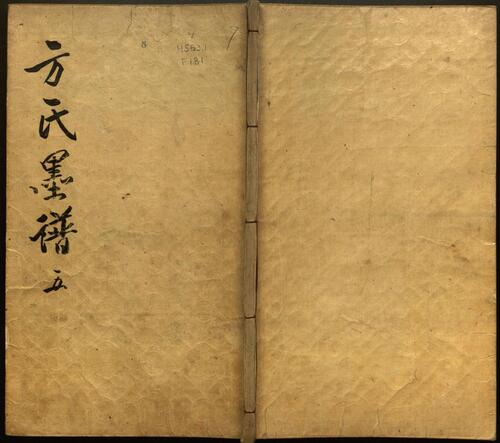 方氏墨譜 五
8
7
F181